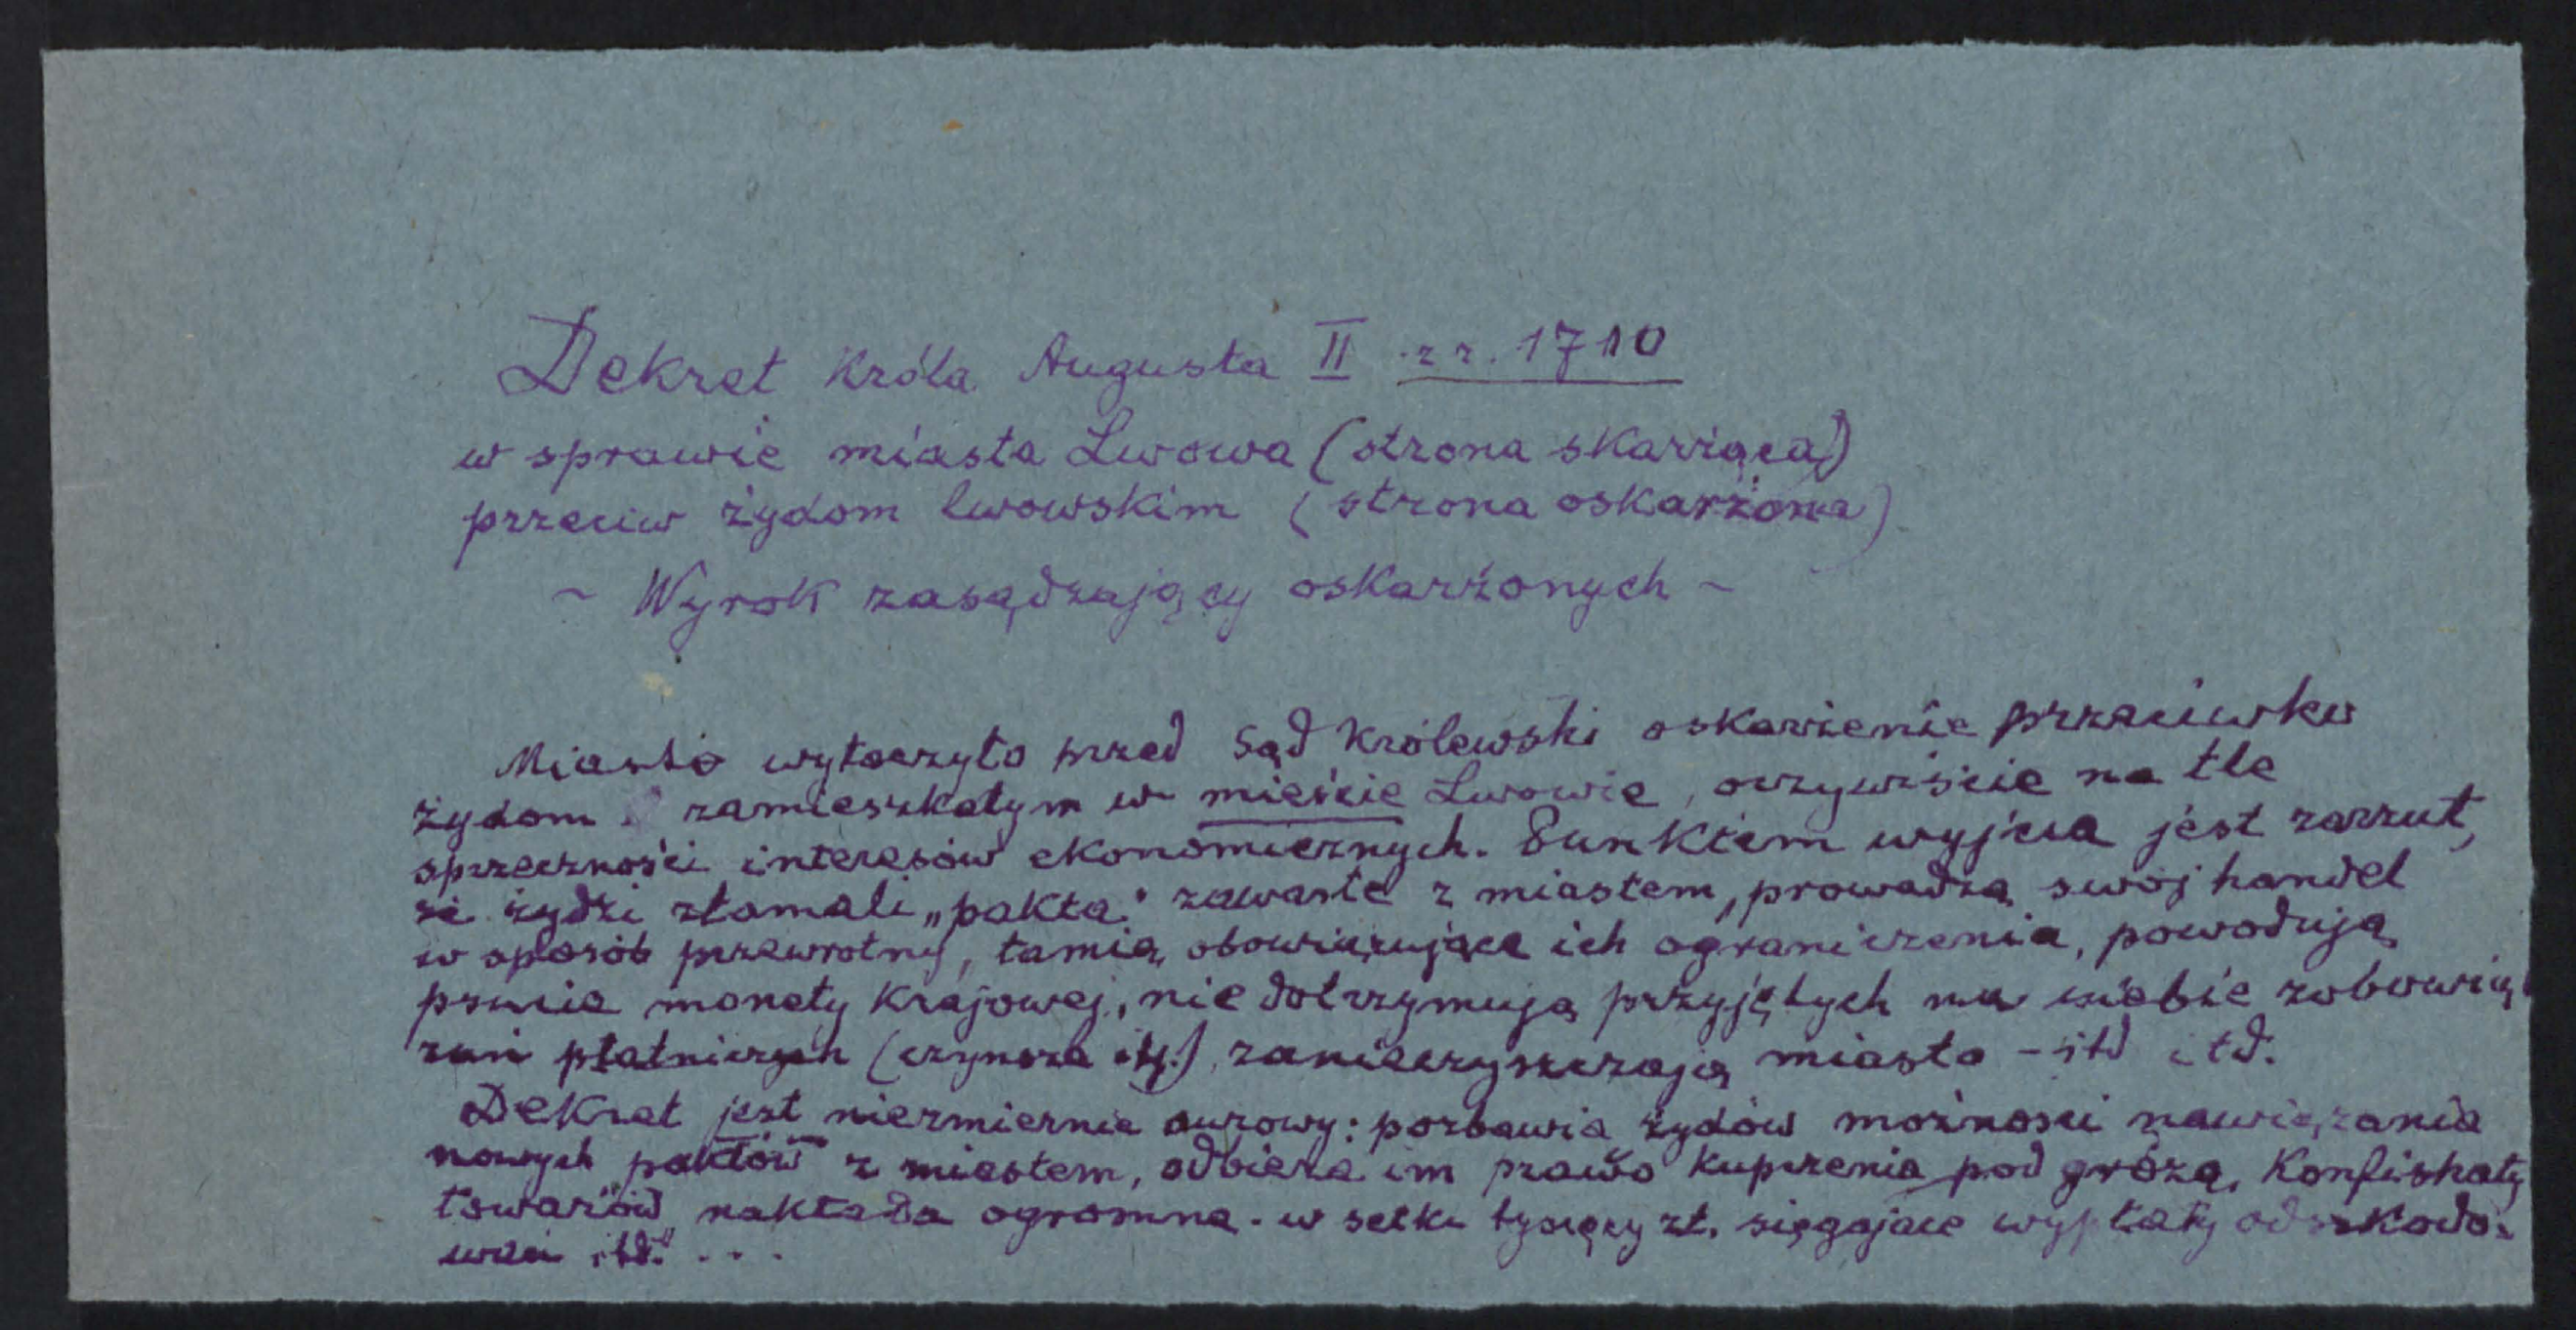 Dekret Króla Augusta II z r. 1710
w sprawie miasta Lwowa (strona skarżąca)
przeciw żydom lwowskim (strona oskarżona)
~ Wyrok zasądzający oskarżonych ~
Miasto wytoczyło przed Sąd Królewski oskarżenie przeciwko
żydom zamieszkałym w mieście Lwowie, oczywiście na tle
sprzeczności interesów ekonomicznych. Punktem wyjścia jest zarzut,
że żydzi złamali „pakta" zawarte z miastem, prowadzą swój handel
w sposób przewrotny, łamią obowiązujące ich ograniczenia, powodują
psucie monety Krajowej, nie dotrzymują przyjętych na siebie zobowią-
zań płatniczych (czynsza itp.), zanieczyszczają miasto - itd itd.
Dekret jest niezmiernie surowy: pozbawia żydów możności nawiązania
nowych „paktów" z miastem, odbiera im prawo kupczenia pod grozą Konfiskaty
towarów, nakłada ogromne - w setki tysięcy zł. sięgające wypłaty odszkodo-
wań itd. . . .